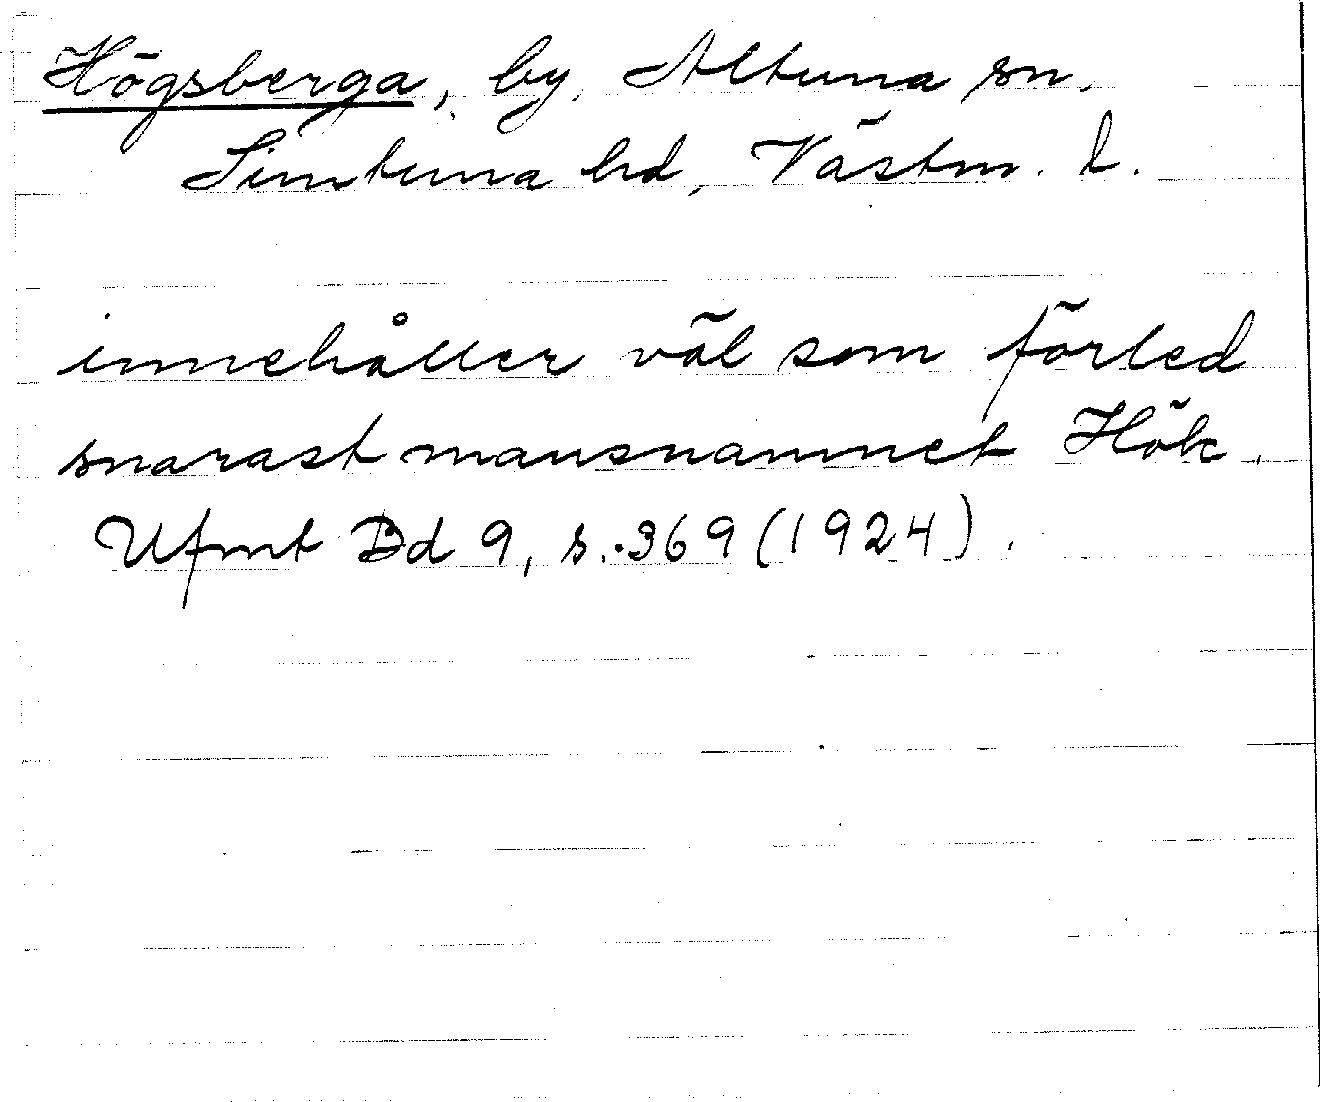 Högsberga, by, Altuna sn.
Simtuna hd, Västm. l.
innehåller väl som förled
snarast mansnamnet Hök.
Ufmt Bd 9, s. 369 (1924).